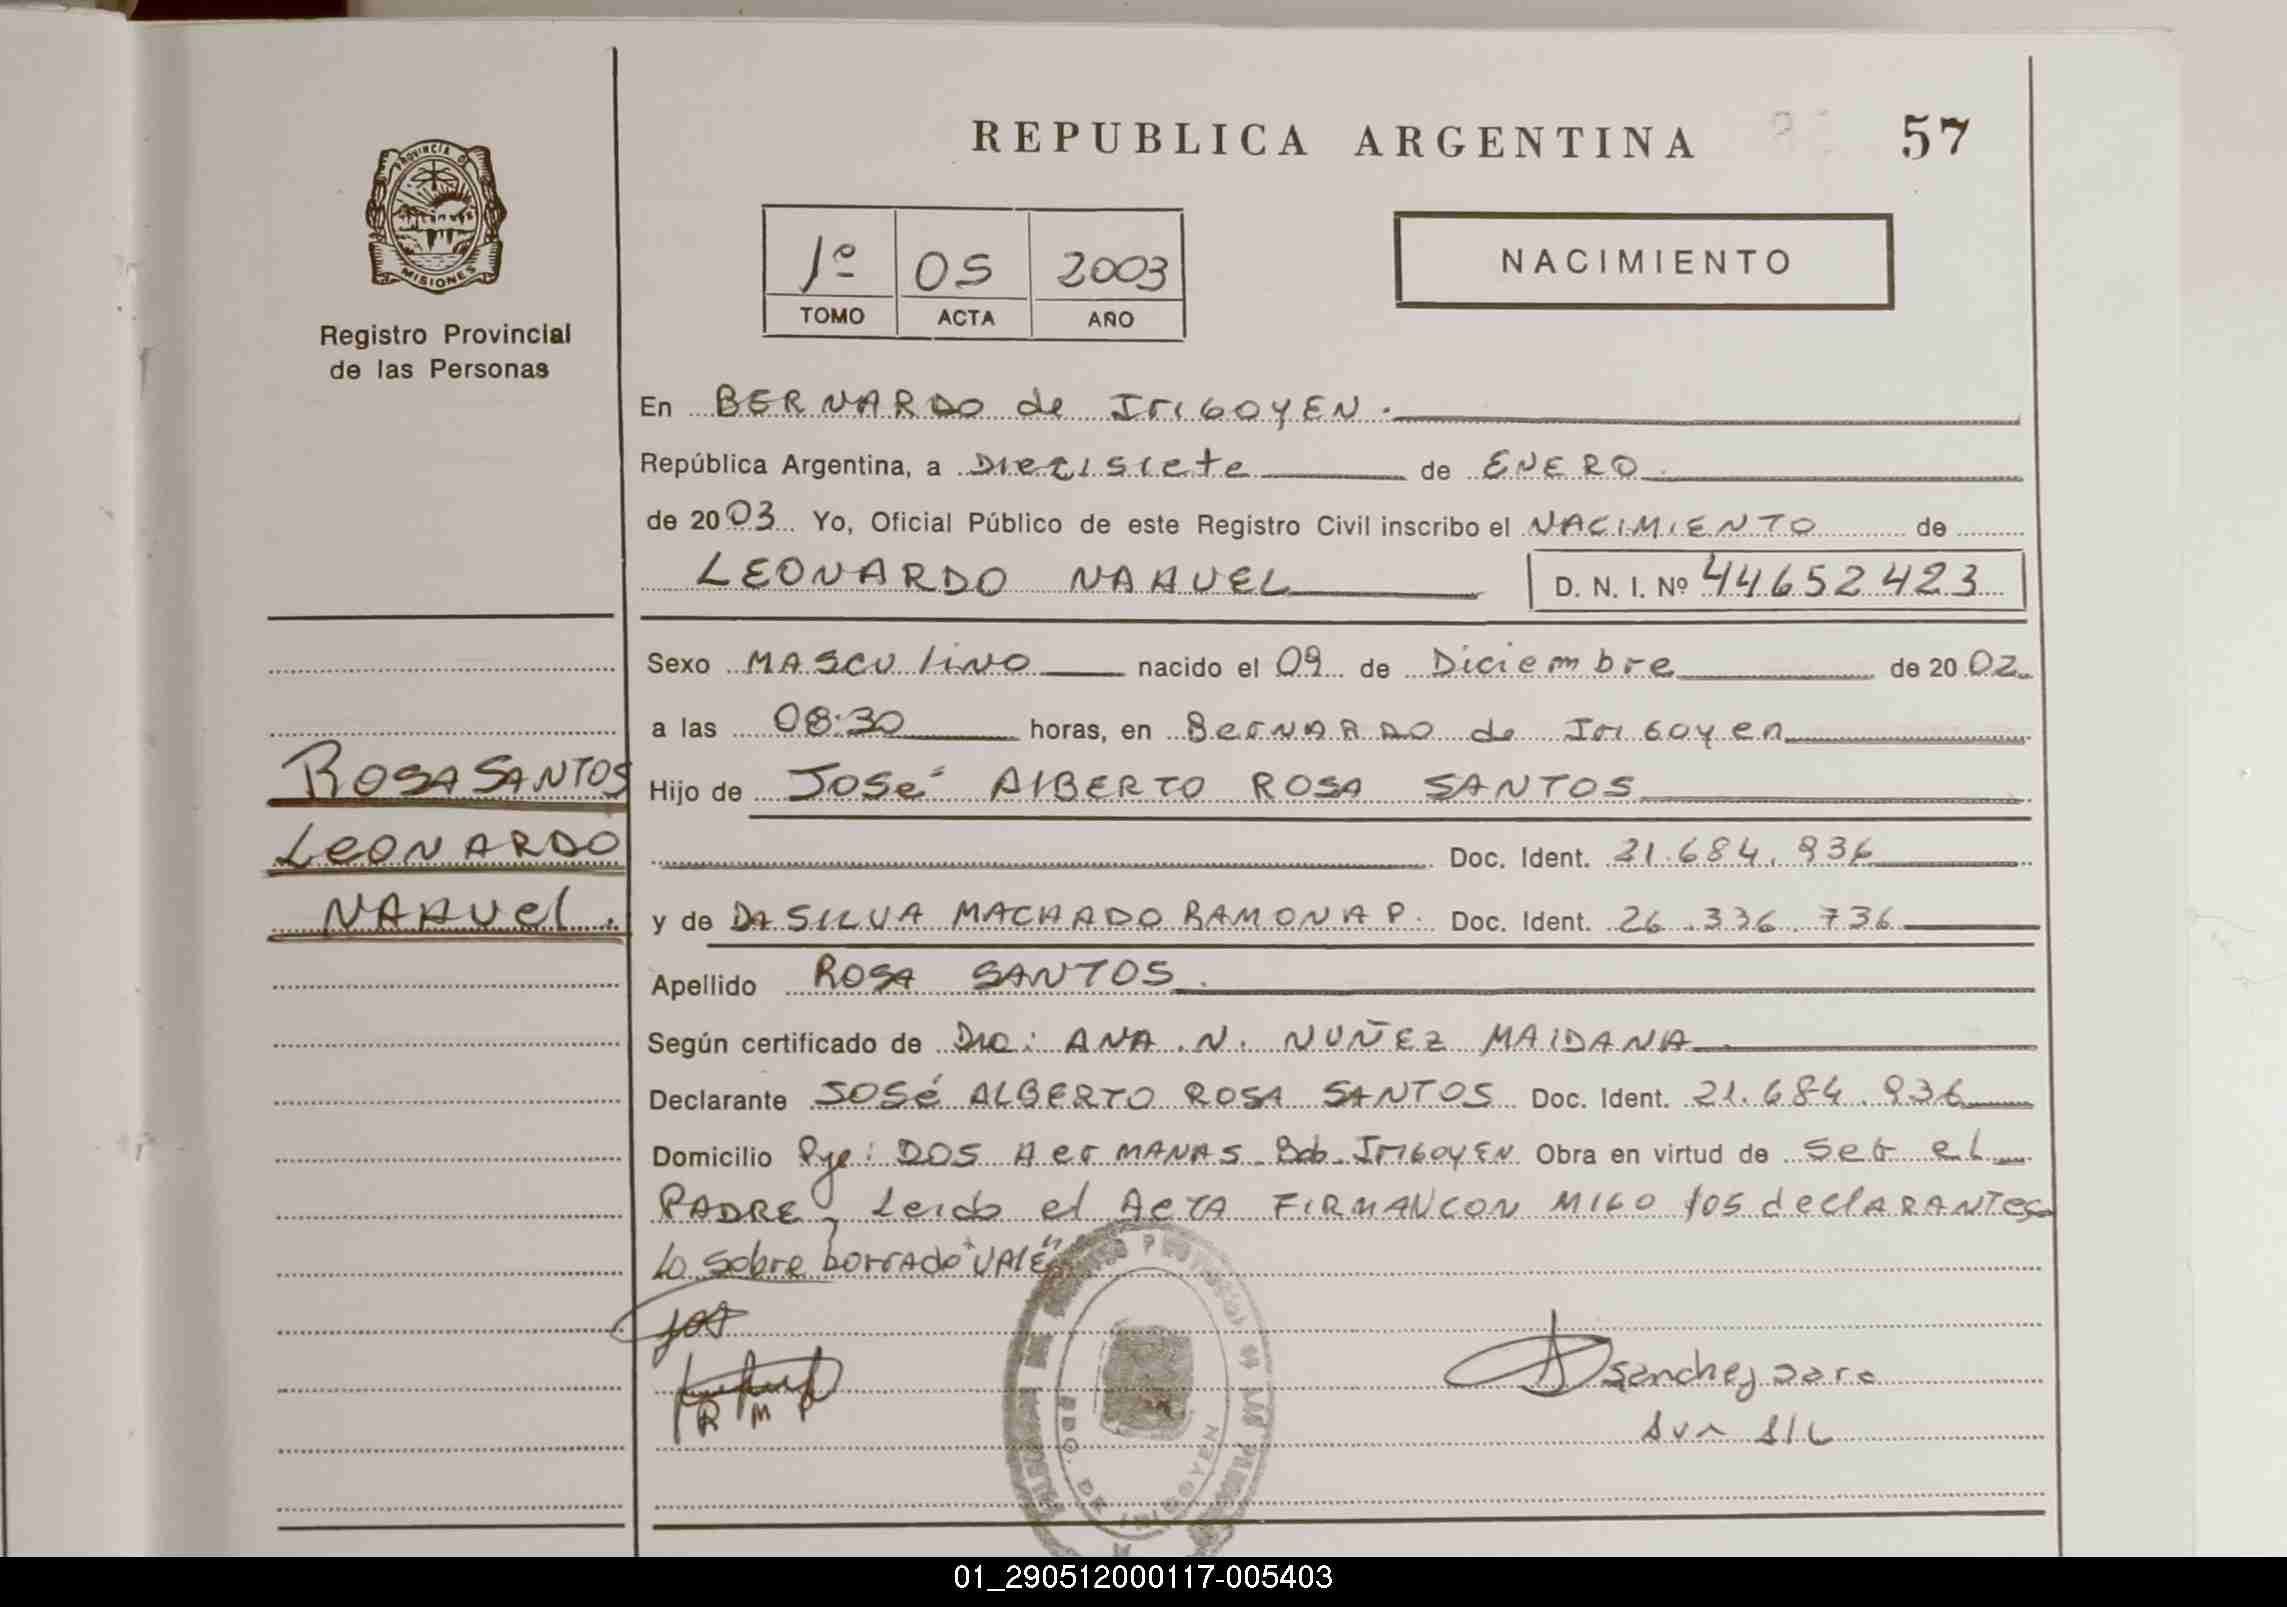 REPUBLICA ARGENTINA
57
PROVINCIA DE
MISIONES
Registro Provincial
de las Personas
1º 05 2003
TOMO ACTA AÑO
NACIMIENTO
En BERNARDO de IriGOYEN.
República Argentina, a Diecisiete de ENERO
de 2003 Yo, Oficial Público de este Registro Civil inscribo el NACIMIENTO de
LEONARDO NAHUEL D. N. I. Nº 44652423
Sexo MASCULINO nacido el 09 de Diciembre de 2002
a las 08:30 horas, en BerNARDO de IriGoyen
ROSA SANTOS
LEONARDO
NAHUEL.
Hijo de José AlBERTO ROSA SANTOS
Doc. Ident. 21.684.936
y de DA SILVA MACHADO RAMONA P. Doc. Ident. 26.336.736
Apellido ROSA SANTOS.
Según certificado de Dra: ANA. N. NUÑEZ MAIDANA
Declarante JOSÉ ALBERTO ROSA SANTOS Doc. Ident. 21.684.936
Domicilio Pje: DOS HerMANAS Bdo. IriGoyEN Obra en virtud de ser el
PADRE, Leido el ActA FIRMAN CON MIGO los declARANTes
Lo sobre borrado "VALE"
R M P
Sanchez Sara
BDO. DE IRIGOYEN
01_290512000117-005403